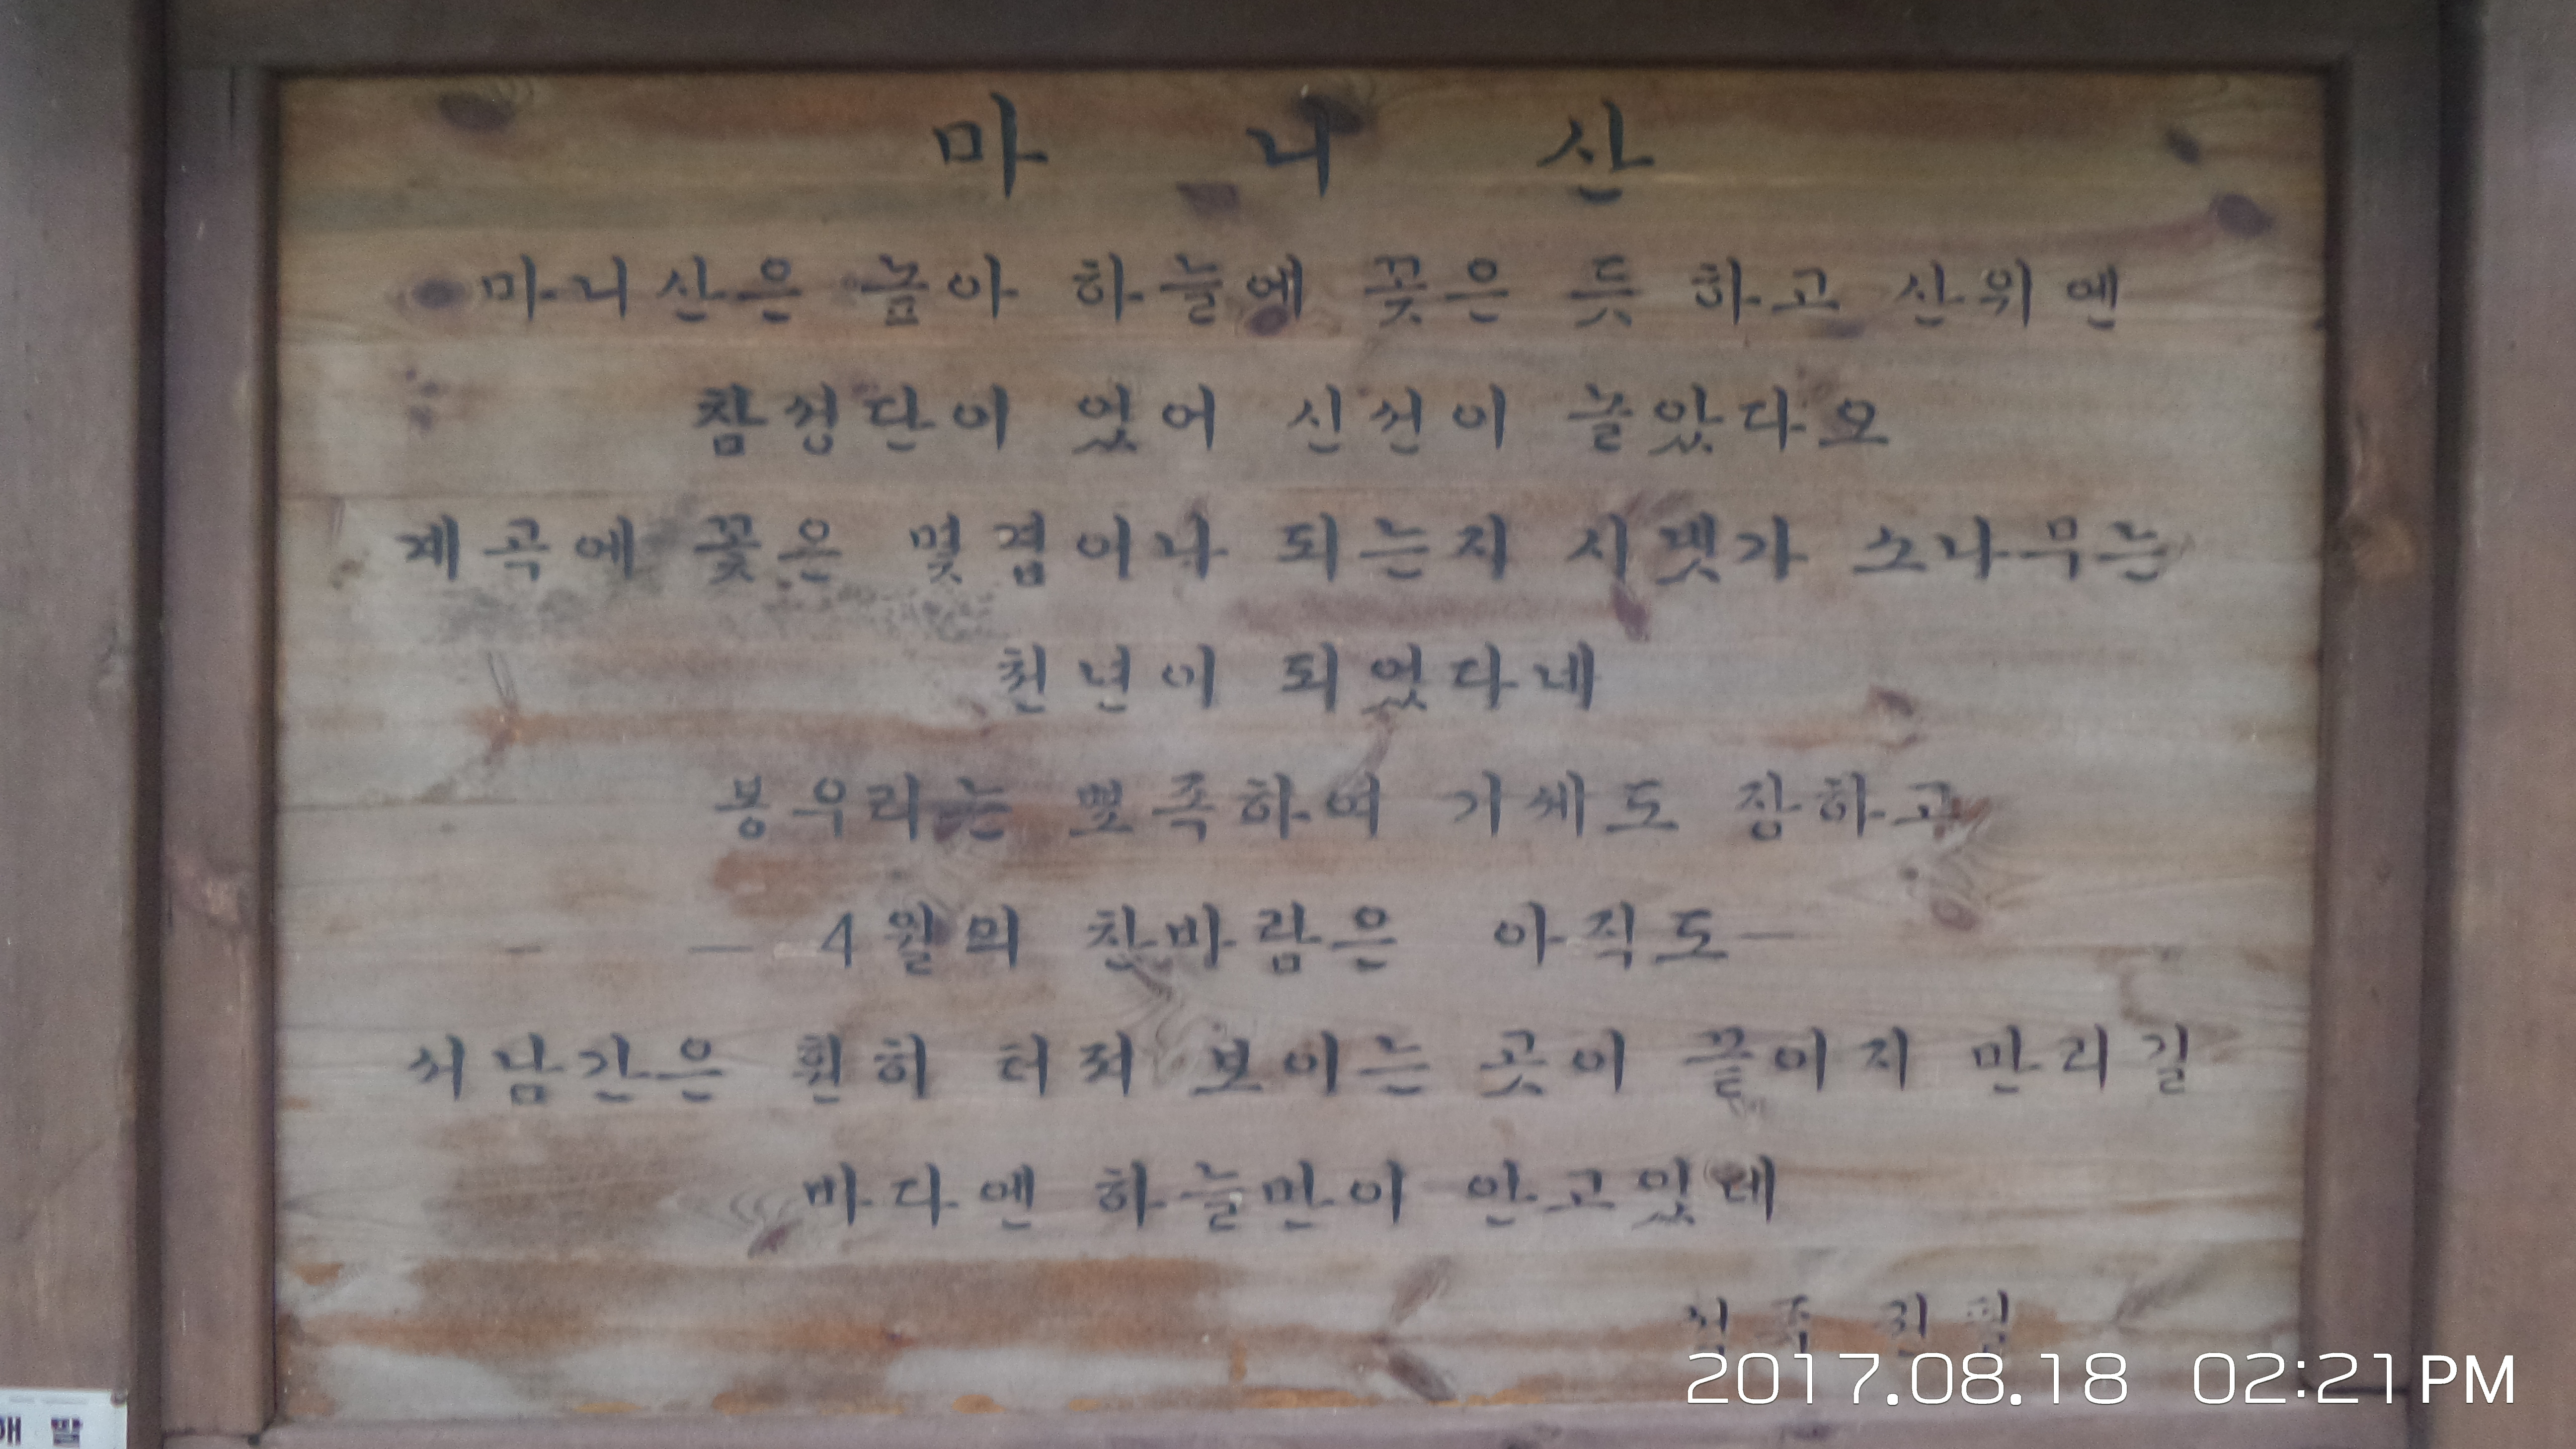 마 니 산
마니산은 높아 하늘에 꽂은 듯 하고 산위엔
참성단이 있어 신선이 놀았다오
계곡에 꽃은 몇겹이나 되는지 시냇가 소나무는
천년이 되었다네
봉우리는 뾰족하여 기세도 장하고
— 4월의 찬바람은 아직도—
서남간은 훤히 터져 보이는 곳이 끝이지 만리길
바다엔 하늘만이 안고있네
2017.08.18 02:21PM